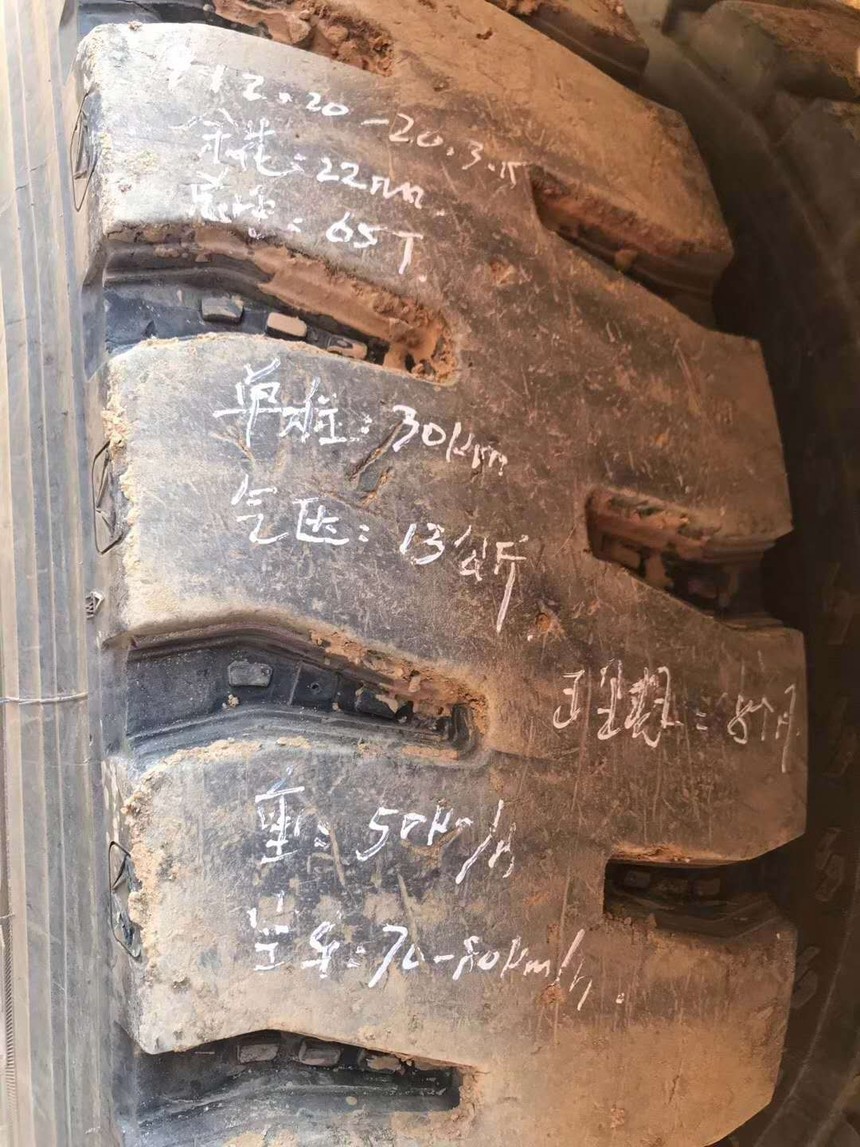 12.20-20.3.15
余花:22mm.
总重:65T.
单程:30km
气压:13公斤
已里程:8个月
重:50km/h
空车:70-80km/h.